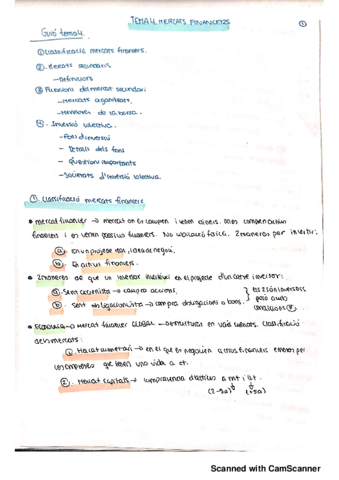 TEMA 4. MERCATS FINANCERS
①
Guió tema 4.
① Classificació mercats financers.
② Mercats secundaris
- Definicions
③ Funcions del mercat secundari
- Mercats organitzats.
- Membres de la borsa.
5. Inversió col·lectiva.
- Fons d'inversió
- Detalls dels fons
- Qüestions importants
- Societats d'inversió col·lectiva.
① Classificació mercats financers
• mercat financer → mercat on es compren i venen
financers i es venen passius financers. No ubicació física. 2 maneres per invertir:
ⓐ En un projecte nou, idea de negoci,
ⓑ En actius financers.
2 maneres de que un inversor inverteixi en el projecte d'un altre inversor:
ⓐ Sent accionista → compra accions,
ⓑ Sent obligacionista → compra obligacions o bons.
• Economia → mercat financer GLOBAL - estructurat en varis mercats. Classificació
dels mercats:
① Mercat monetari → en el que es negocien actius financers emesos per
les empreses que tenen una vida a ct.
② Mercat capitals → compravenda d'actius a mt i llt.
(2-5a) (+5a)
Scanned with CamScanner